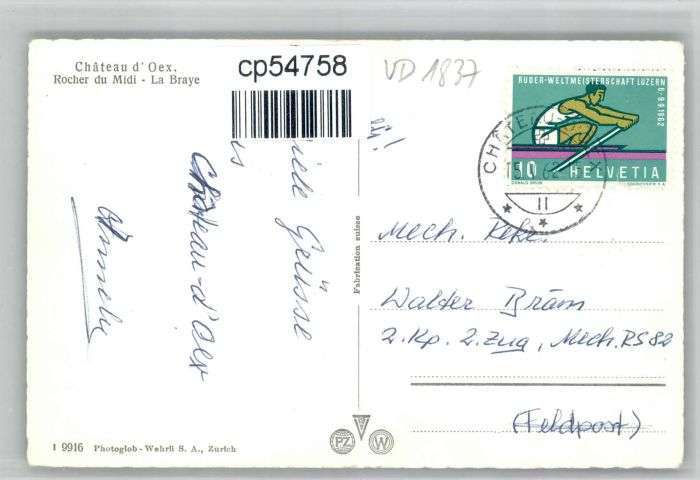 Château d'Oex.
Rocher du Midi - La Braye
cp54758
VD 1837
RUDER-WELTMEISTERSCHAFT LUZERN
6.-9.9.1962
10 HELVETIA
DONALD BRUN
COURVOISIER S.A.
CHÂTEAU
II
Grüsse
Château-d'Oex
Fabrication suisse
Mech.
Walter Bräm
2. Kp. 2. Zug, Mech. RS 82
(Feldpost)
PZ W
I 9916 Photoglob-Wehrli S. A., Zurich